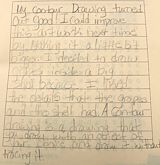 My Contour Drawing turned
out Good! I could improve
this artwork next time
by Making it a little bit
bigger. I decided to draw
a inside a big
Shell because I liked
the details that the grapes
and the shell had. A contour
Drawing is a drawing that
you draw the of
your and draw it without
tracing it.